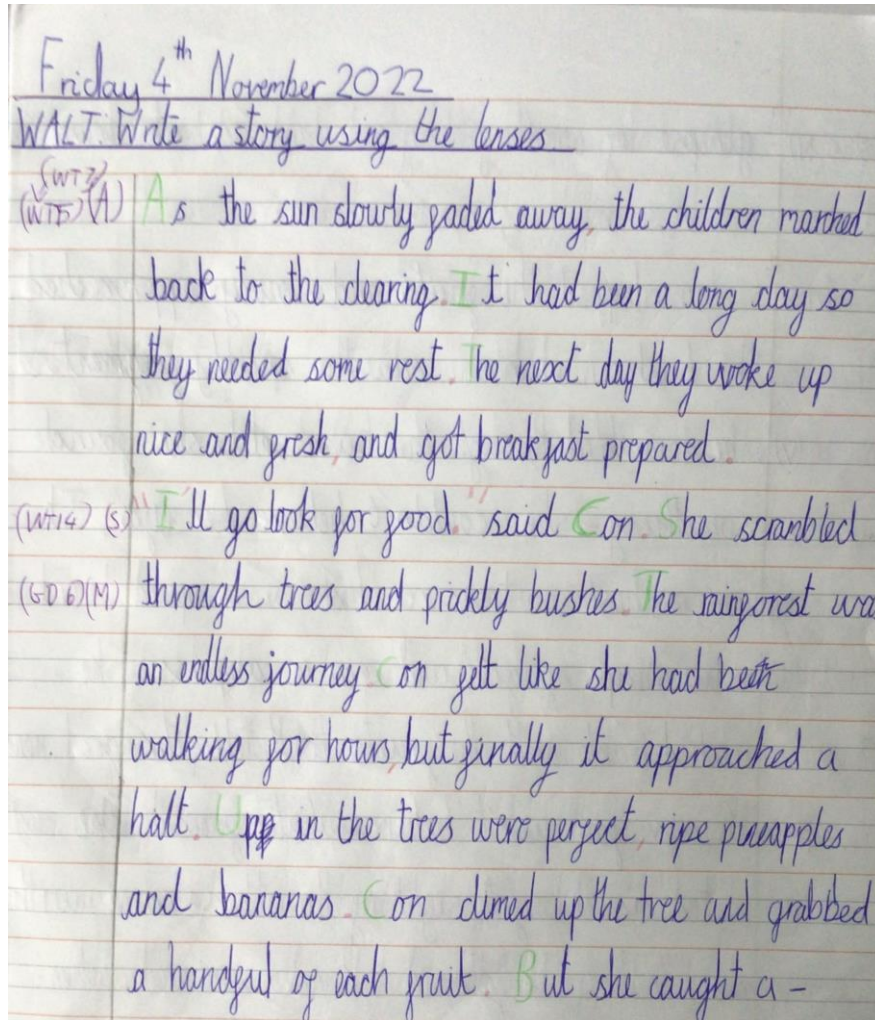 Friday 4th November 2022
WALT: Write a story using the lenses
(WT7)
(WT5) (A) As the sun slowly faded away, the children marched
back to the clearing. It had been a long day so
they needed some rest. The next day they woke up
nice and fresh, and got breakfast prepared.
(WT14) (S) "I'll go look for food." said Con. She scrambled
(GD6) (M) through trees and prickly bushes. The rainforest wa
an endless journey Con felt like she had been
walking for hours, but finally it approached a
halt. Up in the trees were perfect, ripe pineapples
and bananas. Con climed up the tree and grabbed
a handful of each fruit. But she caught a -